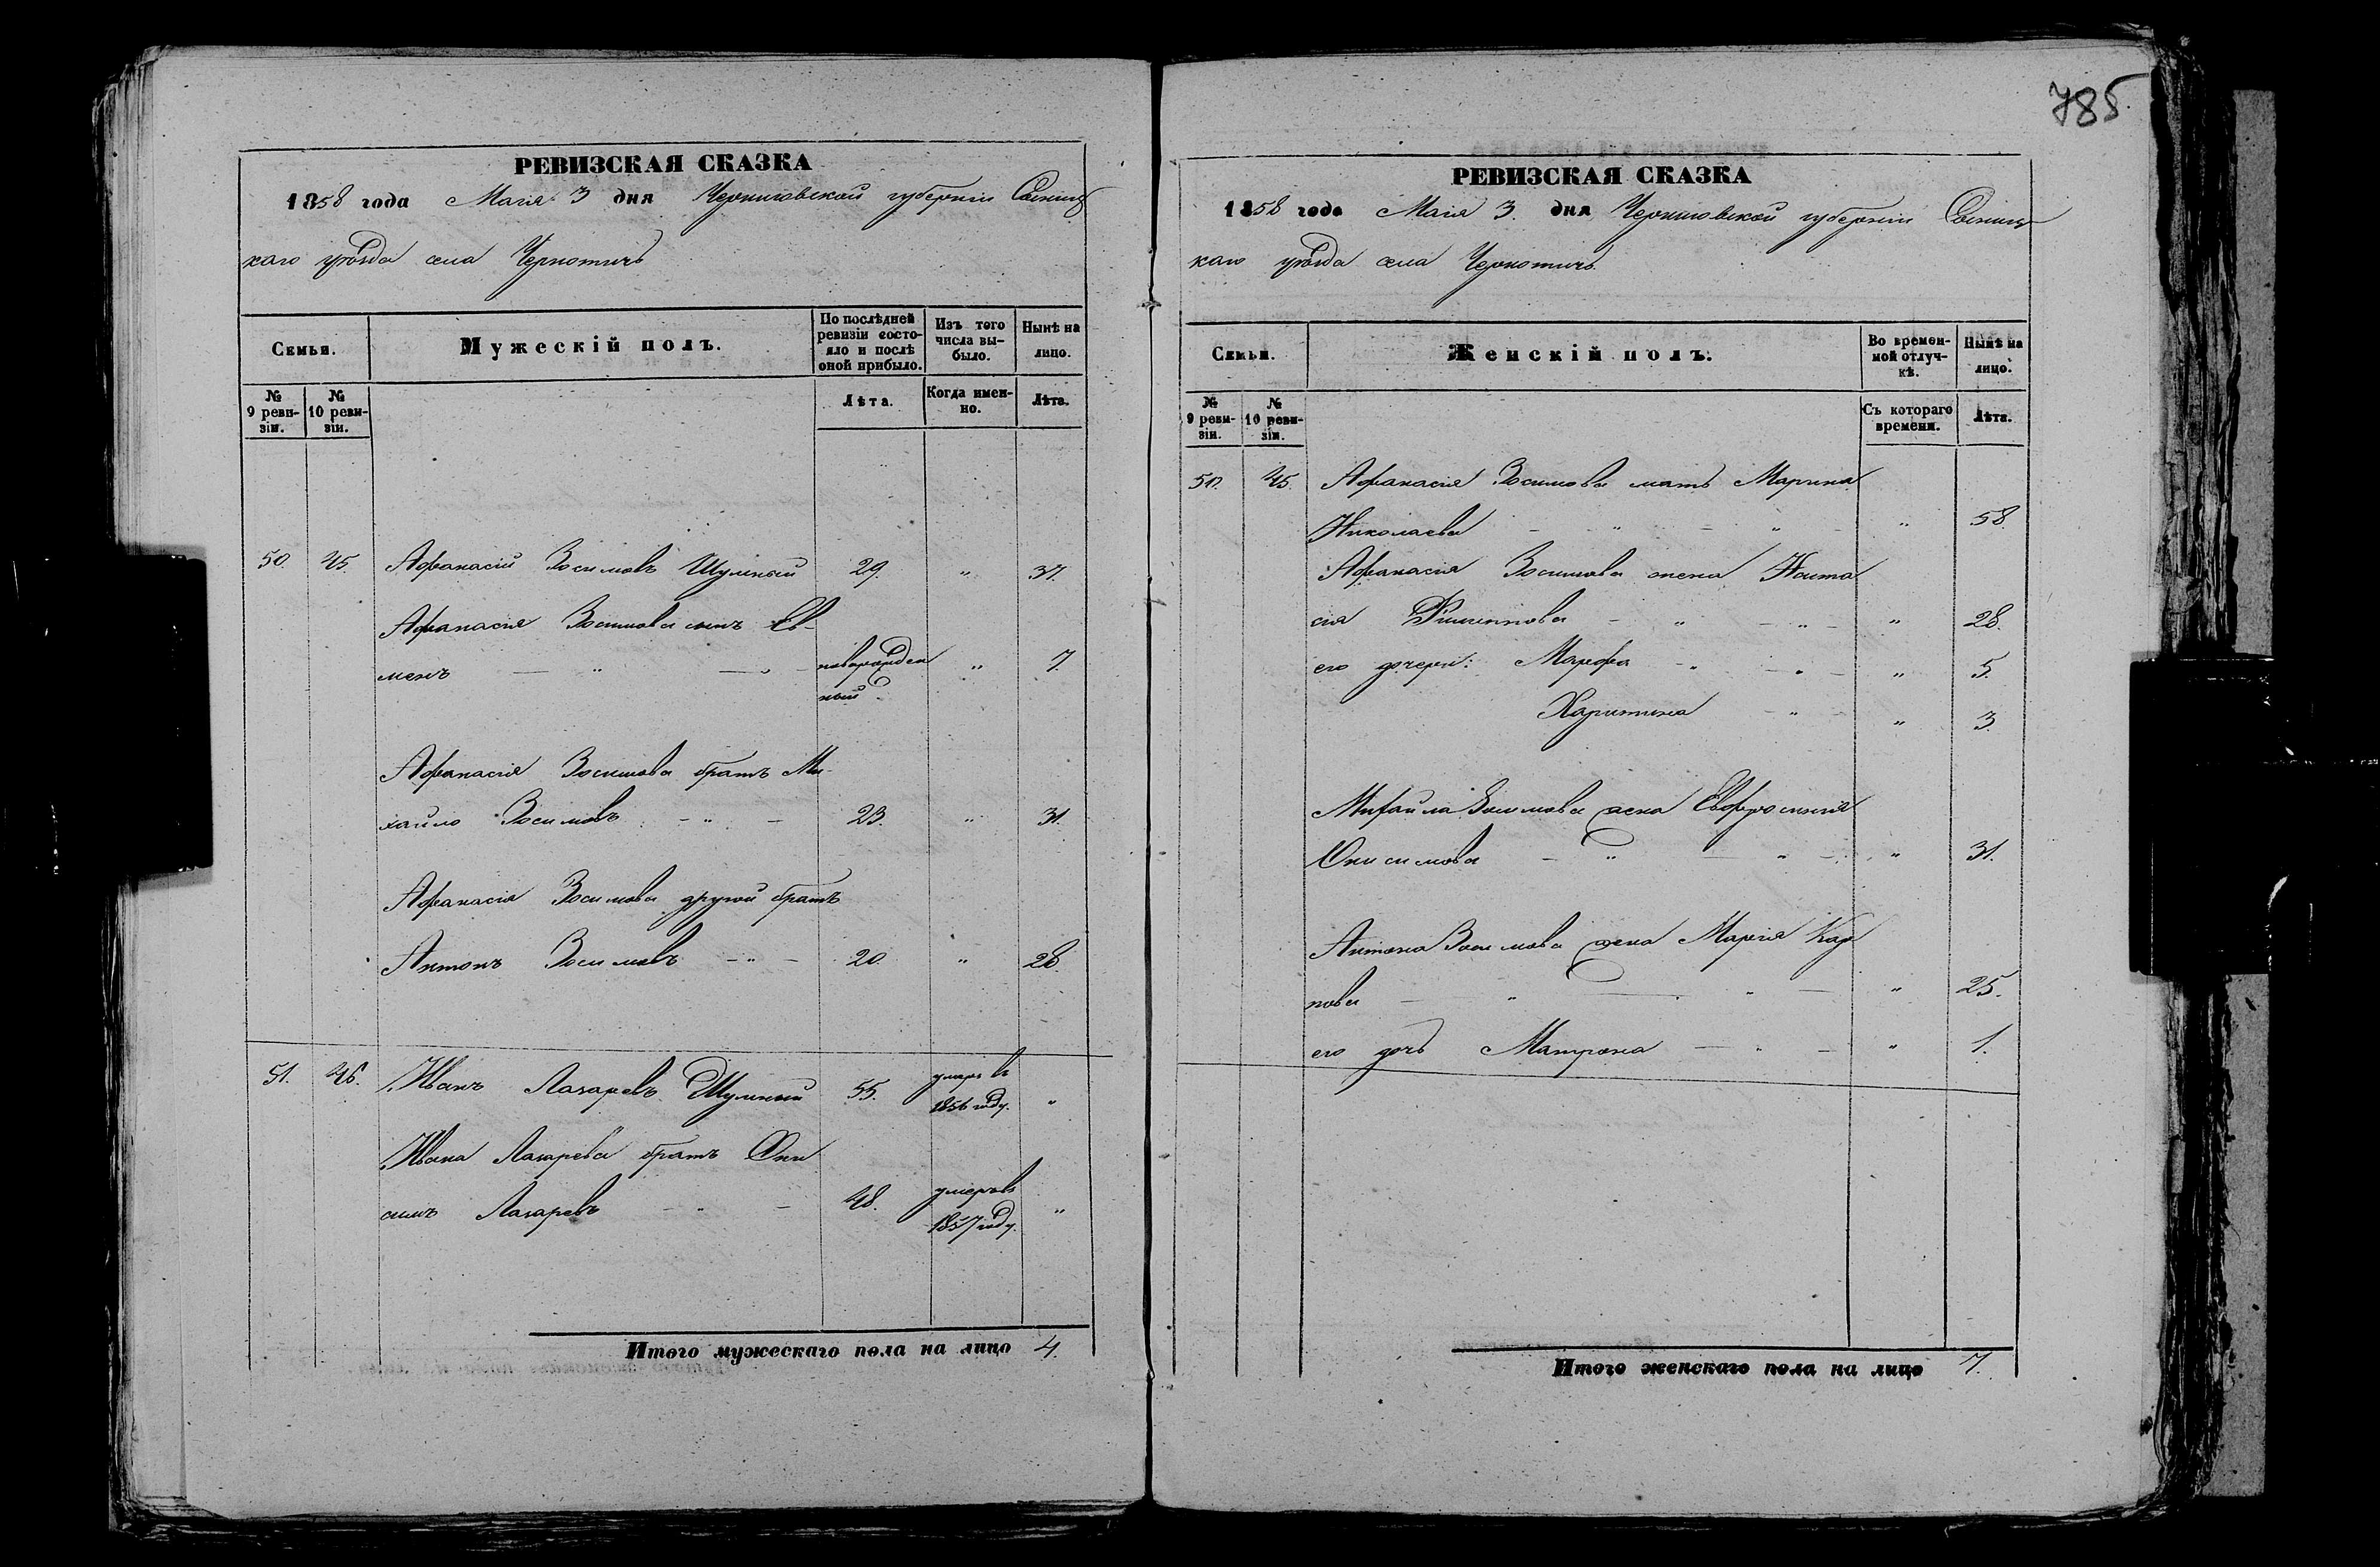 785
РЕВИЗСКАЯ СКАЗКА
1858 года Маія 3 дня Черниговской губерніи Сосниц
каго уѣзда села Чернотичъ
Семьи.
Мужескій полъ.
По послѣдней ревизіи состояло и послѣ оной прибыло.
Изъ того числа выбыло.
Нынѣ на лицо.
№ 9 ревизіи.
№ 10 ревизіи.
Лѣта.
Когда именно.
Лѣта.
50. 45. Афанасій Зосимовъ Шулный 29. " 37.
Афанасія Зосимова сынъ Ев-
менъ — " — " — новорожден " 7.
ный
Афанасія Зосимова братъ Ми-
хайло Зосимовъ - " - 23. " 31.
Афанасія Зосимова другой братъ
Антонъ Зосимовъ - " - 20. " 28.
51. 46. Иванъ Лазаревъ Шулный 55. умеръ въ
1856 году. "
Ивана Лазарева братъ Они
симъ Лазаревъ - " - 48. умеръ въ
1857 году. "
Итого мужескаго пола на лицо 4.
РЕВИЗСКАЯ СКАЗКА
1858 года Маія 3. дня Черниговской губерніи Сосниц
каго уѣзда села Чернотичъ.
Семьи.
Женскій полъ.
Во временной отлучкѣ.
Нынѣ на лицо.
№ 9 ревизіи.
№ 10 ревизіи.
Съ котораго времени.
Лѣта.
50. 45. Афанасія Зосимова мать Марина
Николаева - " - " - " 58
Афанасія Зосимова жена Наста
сія Филиппова - " - " - " 28.
его дочери: Марфа - " - " - " 5.
Харитина - " - " 3.
Михайла Зосимова жена Евфросинія
Онисимова - " - " - " 31.
Антона Зосимова жена Марія Кар
пова — " — " — " 25.
его дочь Матрона — " — " 1.
Итого женскаго пола на лицо 7.